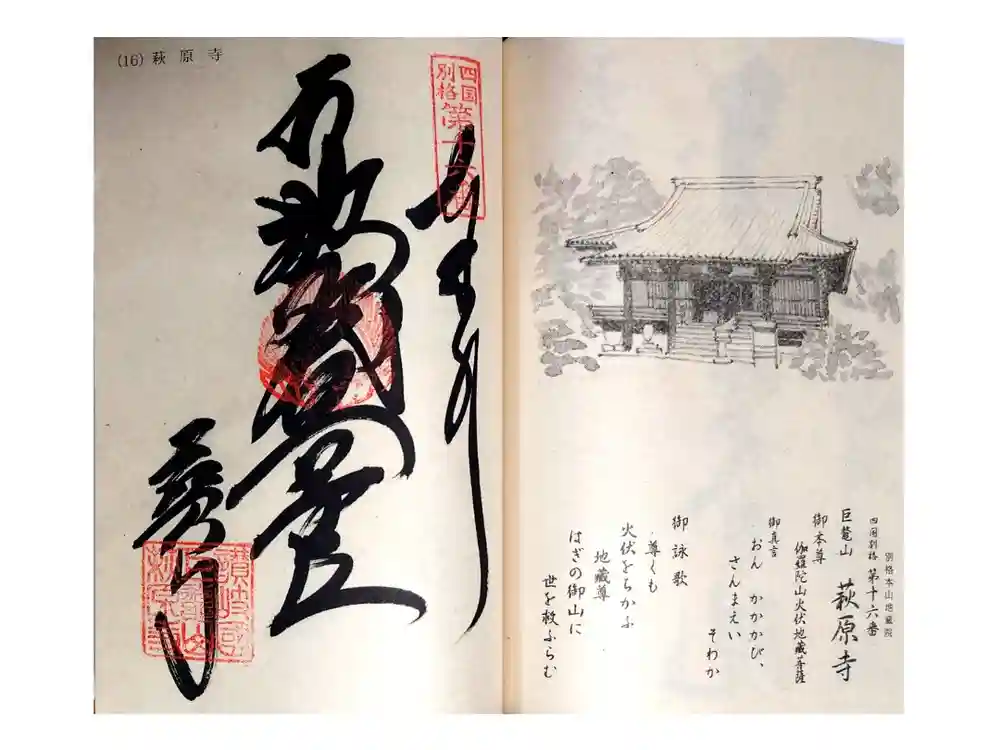 別格本山地蔵院
四国別格 第十六番
巨鼇山 萩原寺
御本尊
伽羅陀山火伏地蔵菩薩
御真言
おん かかかび、
さんまえい
そわか
御詠歌
尊くも
火伏をちかふ
地蔵尊
はぎの御山に
世を救ふらむ
(16) 萩原寺
四国
別格
第十六番
讃岐國
巨鼇山
萩原寺